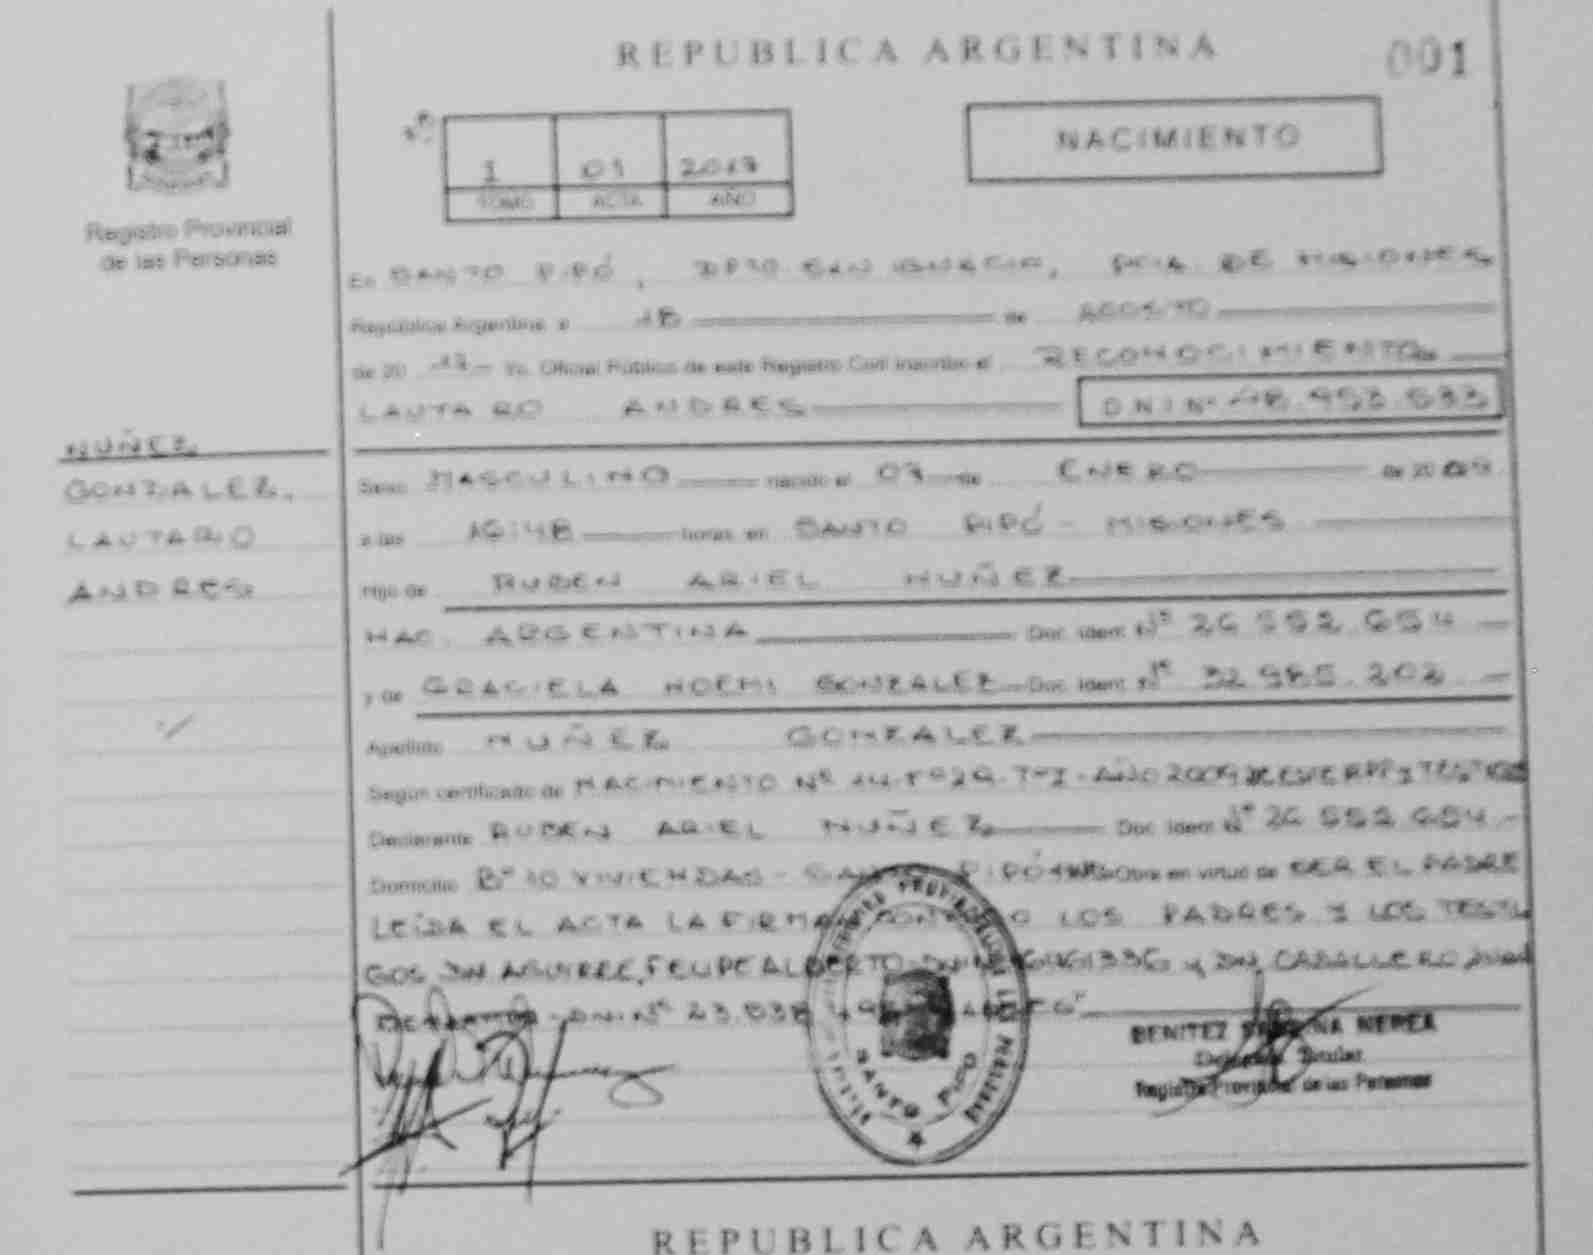 REPUBLICA ARGENTINA
001
Registro Provincial
de las Personas
Nº
1 01 2017
TOMO ACTA AÑO
NACIMIENTO
En SANTO PIPÓ, DPTO. SAN IGNACIO, PCIA. DE MISIONES
República Argentina, a 18 de AGOSTO
de 20 17 Yo, Oficial Público de este Registro Civil inscribo el RECONOCIMIENTO de
LAUTARO ANDRES D.N.I Nº 48.953.533
NUÑEZ
GONZALEZ,
LAUTARO
ANDRES
Sexo MASCULINO nacido el 07 de ENERO de 20
a las 16:48 horas en SANTO PIPÓ - MISIONES
Hijo de RUBEN ARIEL NUÑEZ
NAC. ARGENTINA Doc. Ident. Nº 26 552.654
y de GRACIELA NOEMI GONZALEZ Doc. Ident. Nº 32 985.202
Apellido NUÑEZ GONZALEZ
Según certificado de NACIMIENTO Nº 14-Fº26-TºI-AÑO 2009
Declarante RUBEN ARIEL NUÑEZ Doc. Ident. Nº 26 552 654
Domicilio Bº 10 VIVIENDAS - SANTO PIPÓ Obra en virtud de SER EL PADRE
LEÍDA EL ACTA LA FIRMAN LOS PADRES Y LOS TESTI
GOS DN. AGUIRRE, FELIPE ALBERTO y DN. CABALLERO
DNI.Nº 23.838
BENITEZ NEREA
Titular
Registro Provincial de las Personas
SANTO PIPO
REPUBLICA ARGENTINA